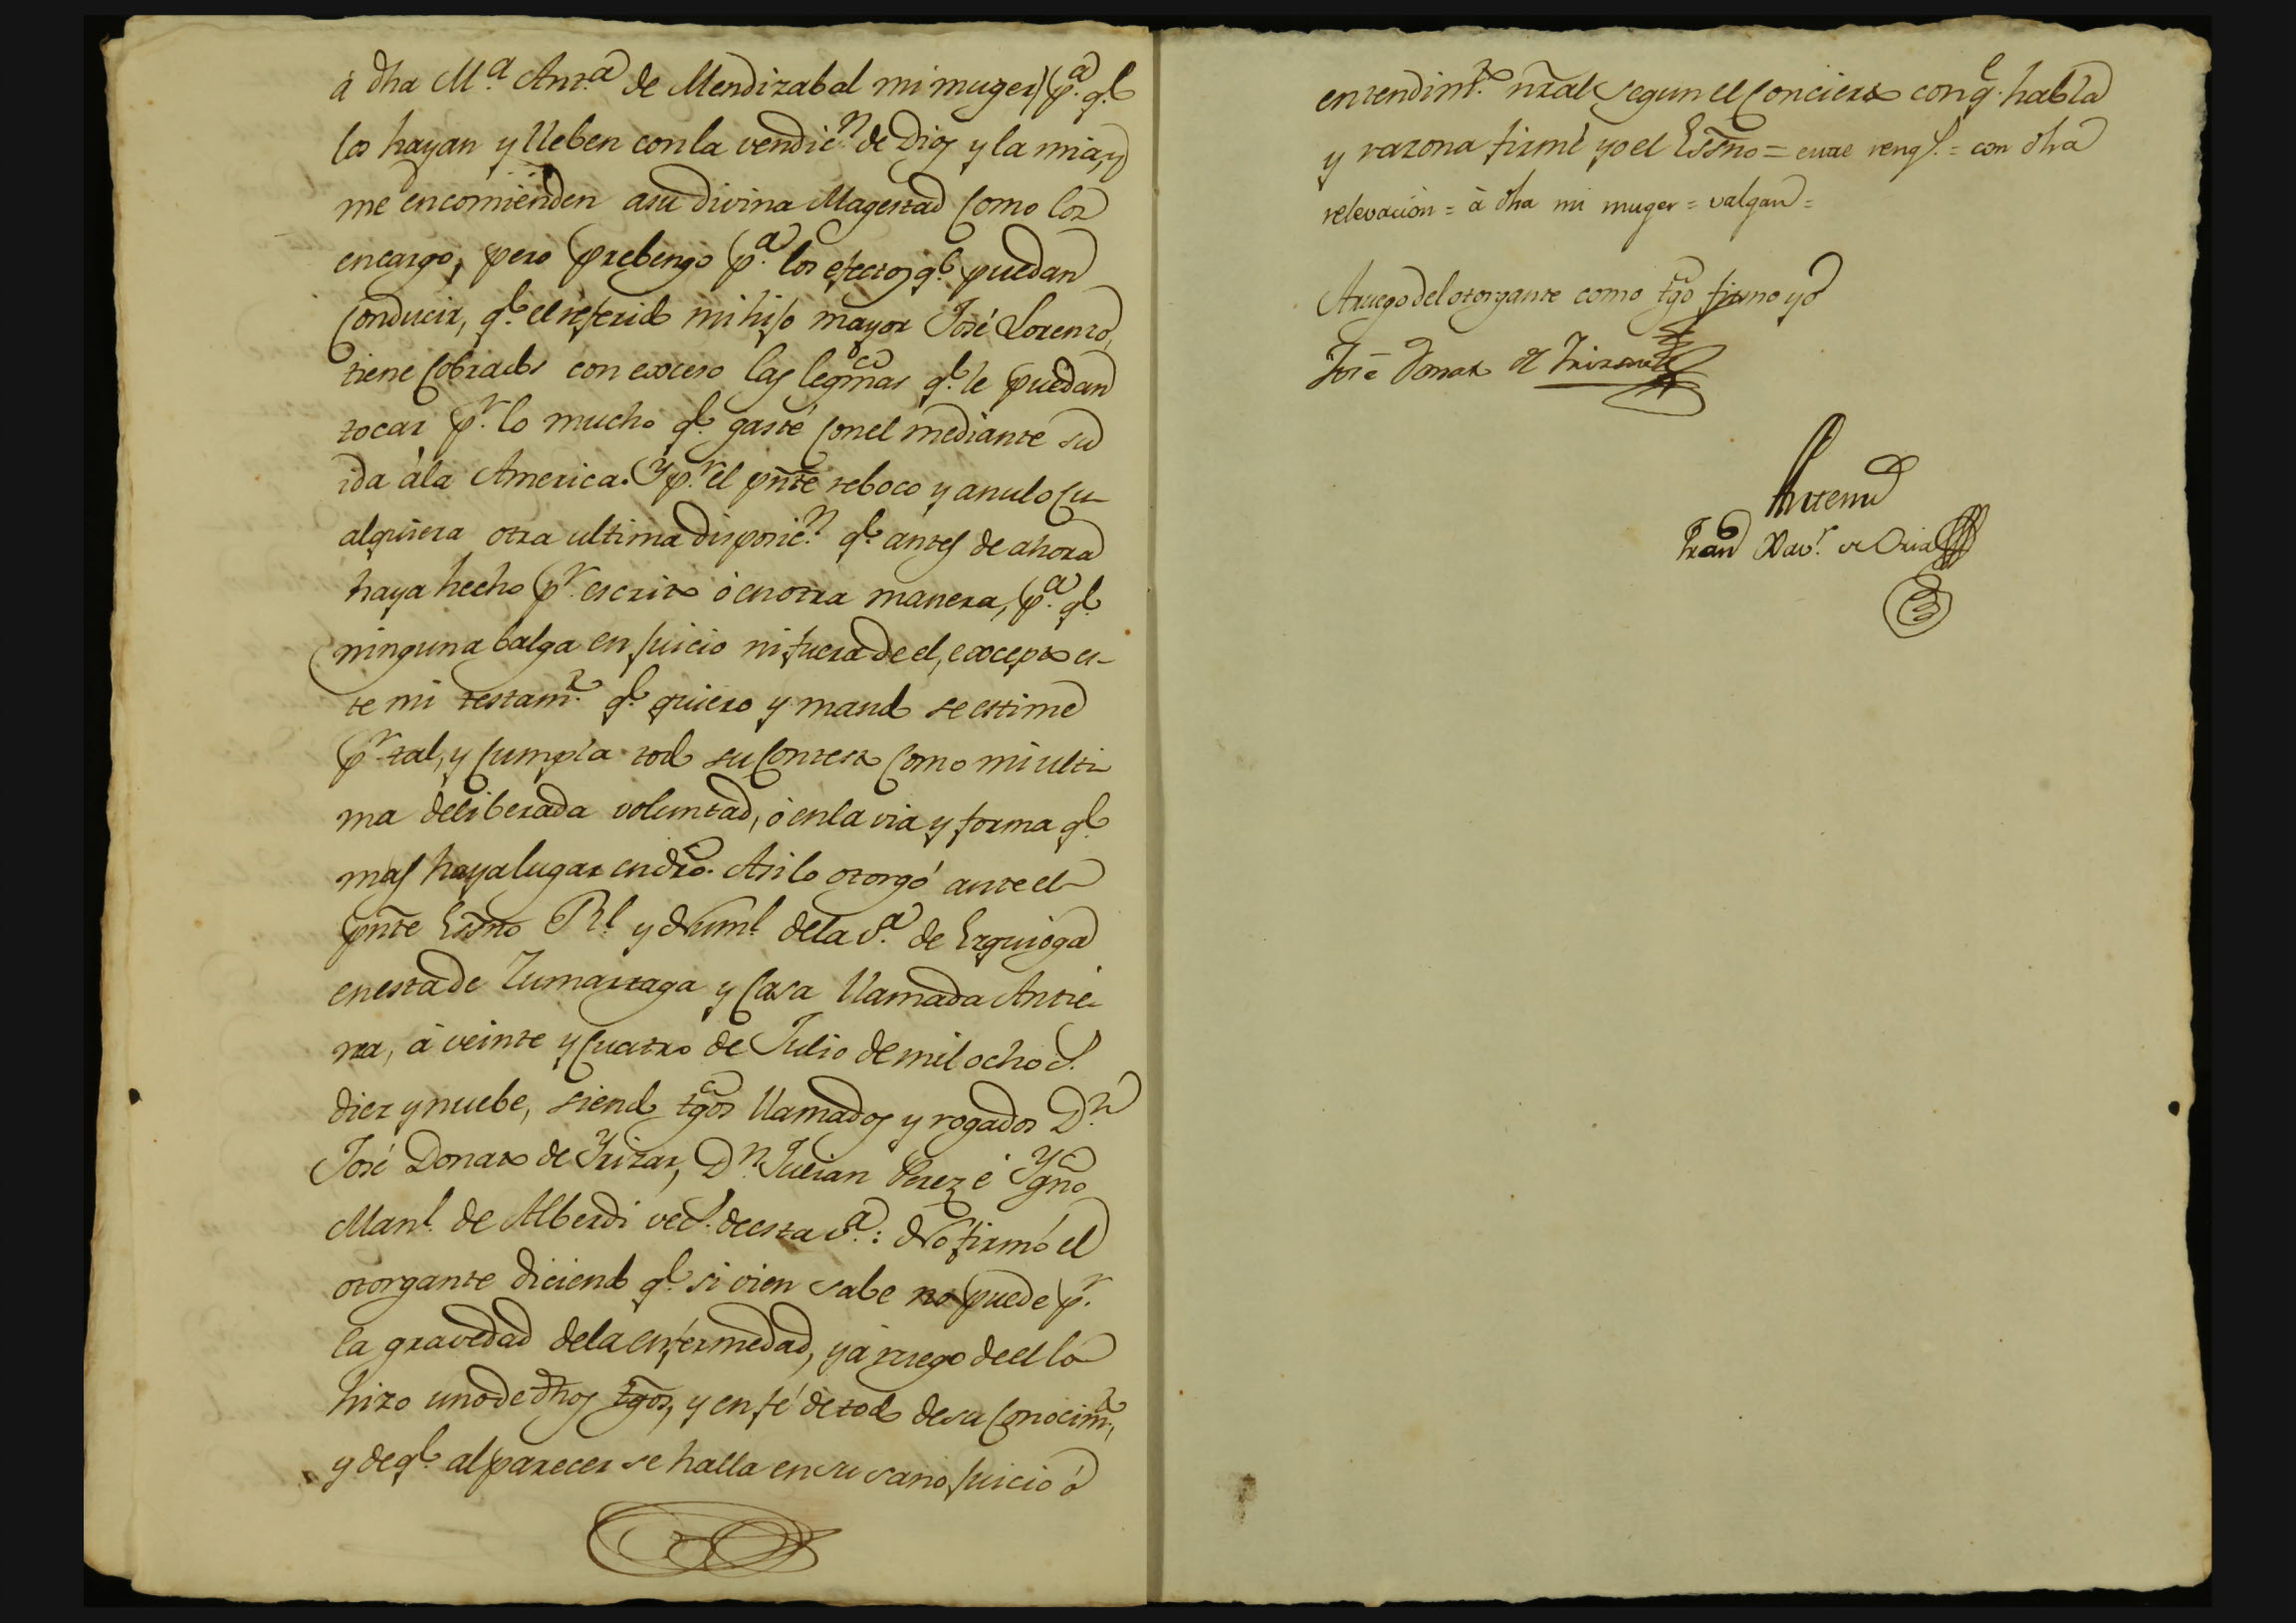 à dha M.ª Ant.ª de Mendizabal mi muger) p.ª q.e
los hayan y lleben con la vendic.n de Dios y la mia, y
me encomienden a su Divina Magestad como los
encargo, pero prebengo p.ª los efectos q.e puedan
conducir, q.e el referido mi hijo mayor José Lorenzo,
tiene cobrados con exceso las legmas q.e le puedan
tocar p.r lo mucho q.e gasté con el mediante su
ida à la America. Y p.r el pnte reboco y anulo cu-
alquiera otra ultima disposic.n q.e antes de ahora
haya hecho p.r escrito ò en otra manera, p.ª q.e
ninguna balga en juicio ni fuera de el, excepto es-
te mi testam.to q.e quiero y mando se estime
p.r tal, y cumpla todo su contesto como mi ulti-
ma deliberada voluntad, ò en la via y forma q.e
mas haya lugar en dro. Asi lo otorgó ante el
pnte Essno R.l y Num.l de la v.ª de Ezquioga
en esta de Zumarraga y casa llamada Antie-
ra, à veinte y cuatro de Julio de mil ocho c.s
diez y nuebe, siendo tgos llamados y rogados D.n
José Donato de Yrizar, D.n Julian Perez é Ygno
Man.l de Alberdi vec.s de esta v.ª: No firmó el
otorgante diciendo q.e si vien sabe no puede p.r
la gravedad de la enfermedad, y à ruego de el lo
hizo uno de dhos tgos, y en fé de todo de su conocim.to,
y de q.e al parecer se halla en su sano juicio ò
entendim.to nral segun el concierto con q.e habla
y razona firmé yo el Essno = entre reng.s = con dha
relevacion = à dha mi muger = valgan =
A ruego del otorgante como tgo firmo yo
José Donato de Yrizar
Antemi
Fran.co Xav.r de Oria